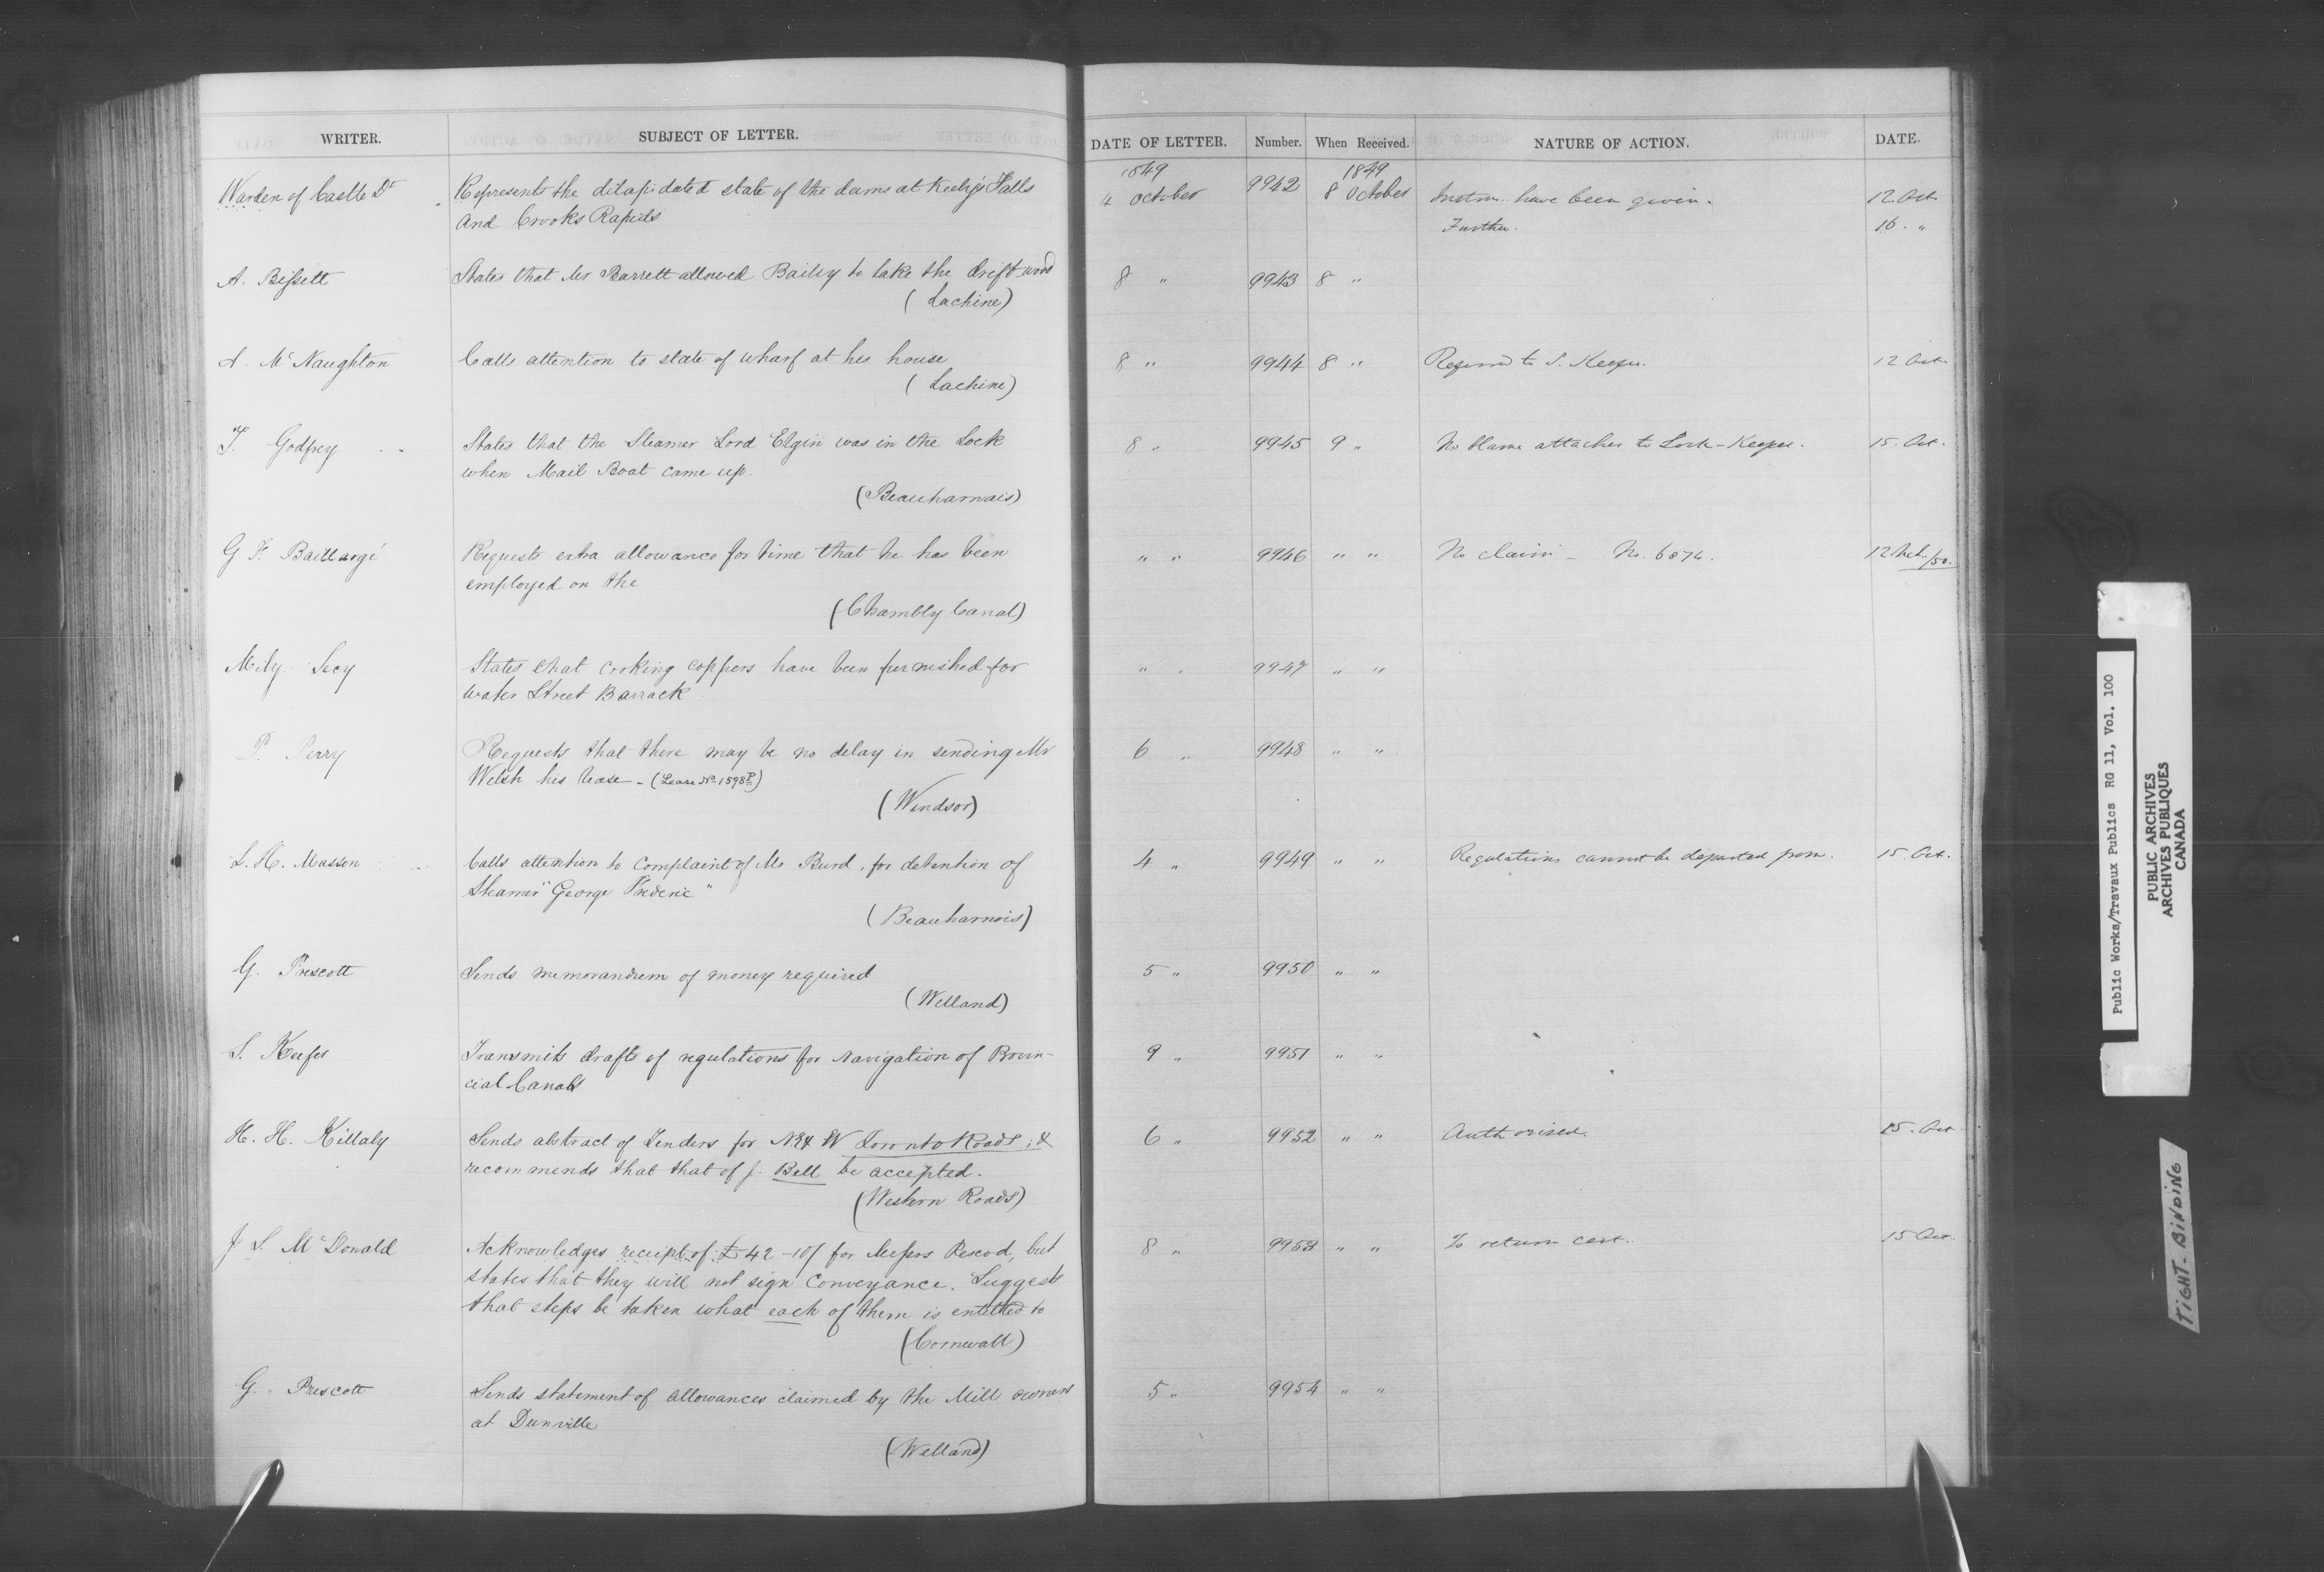 WRITER. SUBJECT OF LETTER. DATE OF LETTER. Number. When Received. NATURE OF ACTION. DATE.
1849 1849
Warden of Castle Dt Represents the dilapidated state of the dams at Keely's Falls 4 October 9942 8 October Instrns. have been given. 12. Oct.
And Crooks Rapids Further. 16. "
A. Bissett States that Mr Barrett allowed Bailey to take the drift wood 8 " 9943 8 "
(Lachine)
A. McNaughton Calls attention to state of wharf at his house 8 " 9944 8 " Referred to S. Keefer. 12 Oct.
(Lachine)
T. Godfrey States that the Steamer Lord Elgin was in the Lock 8 " 9945 9 " No blame attaches to Lock-Keeper. 15. Oct.
when Mail Boat came up.
(Beauharnais)
G F. Baillargé Requests extra allowance for time that he has been " " 9946 " " No claim - No. 6874. 12 /50.
employed on the
(Chambly Canal)
Mily. Secy States that cooking coppers have been furnished for " " 9947 " "
Water Street Barrack
P. Perry Requests that there may be no delay in sending Mr 6 " 9948 " "
Welsh his lease - (Lease No. 1598)
(Windsor)
L. H. Masson Calls attention to complaint of Mr Burd, for detention of 4 " 9949 " " Regulations cannot be departed from. 15. Oct.
Steamer "George Frederic"
(Beauharnois)
G. Prescott Sends memorandum of money required 5 " 9950 " "
(Welland)
S. Keefer Transmits drafts of regulations for Navigation of Provin- 9 " 9951 " "
cial Canals
H. H. Killaly Sends abstract of Tenders for N & W Toronto Roads; & 6 " 9952 " " Authorised. 15. Oct.
recommends that that of J. Bell be accepted.
(Western Roads)
J S. McDonald Acknowledges receipt of £42-10/ for Messrs Pescod, but 8 " 9953 " " To return cert. 15 Oct.
states that they will not sign Conveyance. Suggests
that steps be taken what each of them is entitled to
(Cornwall)
G. Prescott Sends statement of allowances claimed by the Mill owners 5 " 9954 " "
at Dunville
(Welland)
Public Works/Travaux Publics RG 11, Vol. 100
PUBLIC ARCHIVES
ARCHIVES PUBLIQUES
CANADA
TIGHT-BINDING